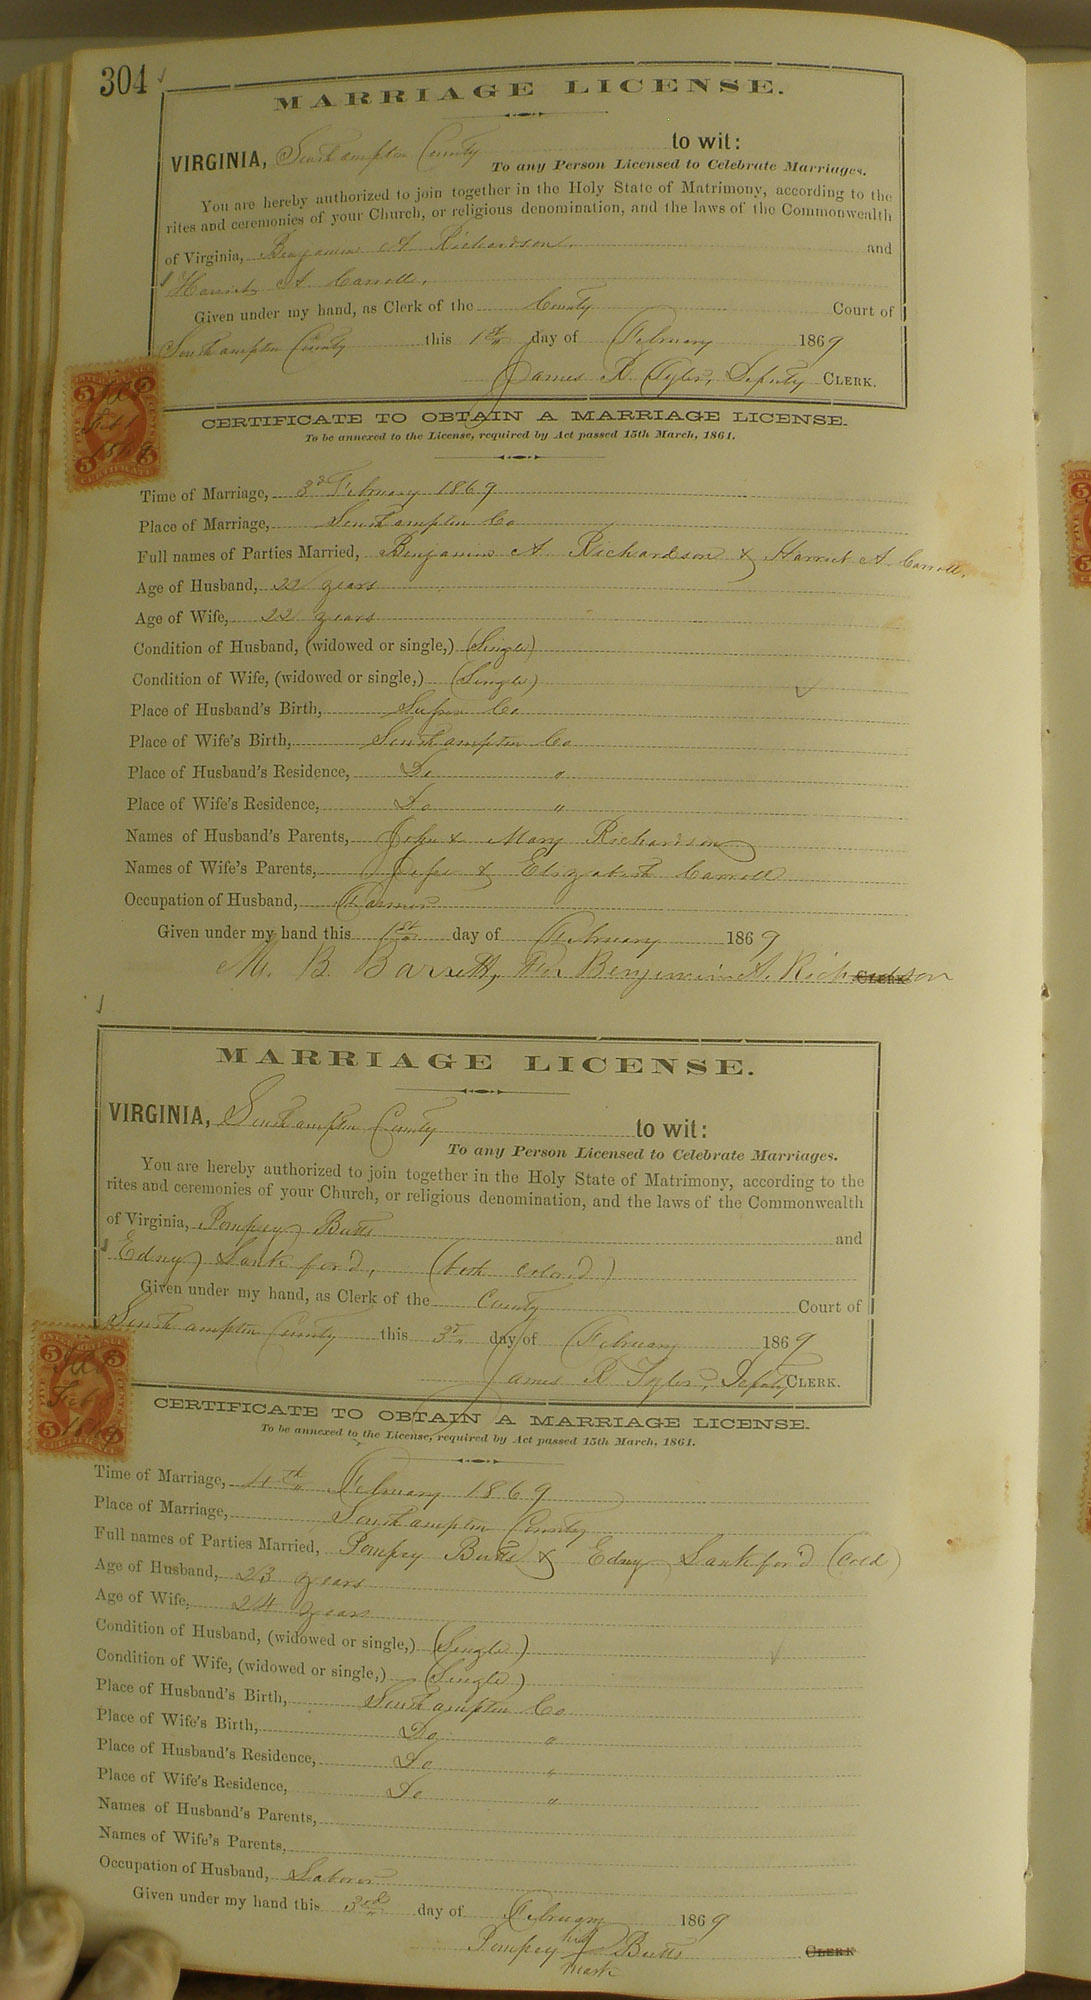 304
MARRIAGE LICENSE.
VIRGINIA, Southampton County to wit:
To any Person Licensed to Celebrate Marriages.
You are hereby authorized to join together in the Holy State of Matrimony, according to the
rites and ceremonies of your Church, or religious denomination, and the laws of the Commonwealth
of Virginia, Benjamin A Richardson and
Harriet A. Carroll.
Given under my hand, as Clerk of the County Court of
Southampton County this 1st day of February 1869
James R. Tyler, Deputy CLERK.
CERTIFICATE TO OBTAIN A MARRIAGE LICENSE.
To be annexed to the License, required by Act passed 15th March, 1861.
5 5
Feb 1
1869
5 5
CERTIFICATE
Time of Marriage, 3d February 1869
Place of Marriage, Southampton Co
Full names of Parties Married, Benjamin A. Richardson & Harriet A. Carroll.
Age of Husband, 22 years
Age of Wife, 22 years
Condition of Husband, (widowed or single,) (Single)
Condition of Wife, (widowed or single,) (Single)
Place of Husband's Birth, Co
Place of Wife's Birth, Southampton Co
Place of Husband's Residence, Do "
Place of Wife's Residence, Do "
Names of Husband's Parents, John & Mary Richardson
Names of Wife's Parents, & Elizabeth Carroll
Occupation of Husband, Farmer
Given under my hand this 1st day of February 1869
M. B. Barrett, For Benjamin A. Richardson CLERK
MARRIAGE LICENSE.
VIRGINIA, Southampton County to wit:
To any Person Licensed to Celebrate Marriages.
You are hereby authorized to join together in the Holy State of Matrimony, according to the
rites and ceremonies of your Church, or religious denomination, and the laws of the Commonwealth
of Virginia, Pompey Butts and
Edney Lankford, (both colord)
Given under my hand, as Clerk of the County Court of
Southampton County this 3d day of February 1869
James R Tyler, Deputy CLERK.
CERTIFICATE TO OBTAIN A MARRIAGE LICENSE.
To be annexed to the License, required by Act passed 15th March, 1861.
5 5
Feb
1869
5 5
CERTIFICATE
Time of Marriage, 4th February 1869
Place of Marriage, Southampton County
Full names of Parties Married, Pompey Butts & Edney Lankford (Cold)
Age of Husband, 23 years
Age of Wife, 24 years
Condition of Husband, (widowed or single,) (Single)
Condition of Wife, (widowed or single,) (Single)
Place of Husband's Birth, Southampton Co
Place of Wife's Birth, Do "
Place of Husband's Residence, Do "
Place of Wife's Residence, Do "
Names of Husband's Parents,
Names of Wife's Parents,
Occupation of Husband, Laborer
Given under my hand this 3rd day of February 1869
Pompey his Butts CLERK
mark